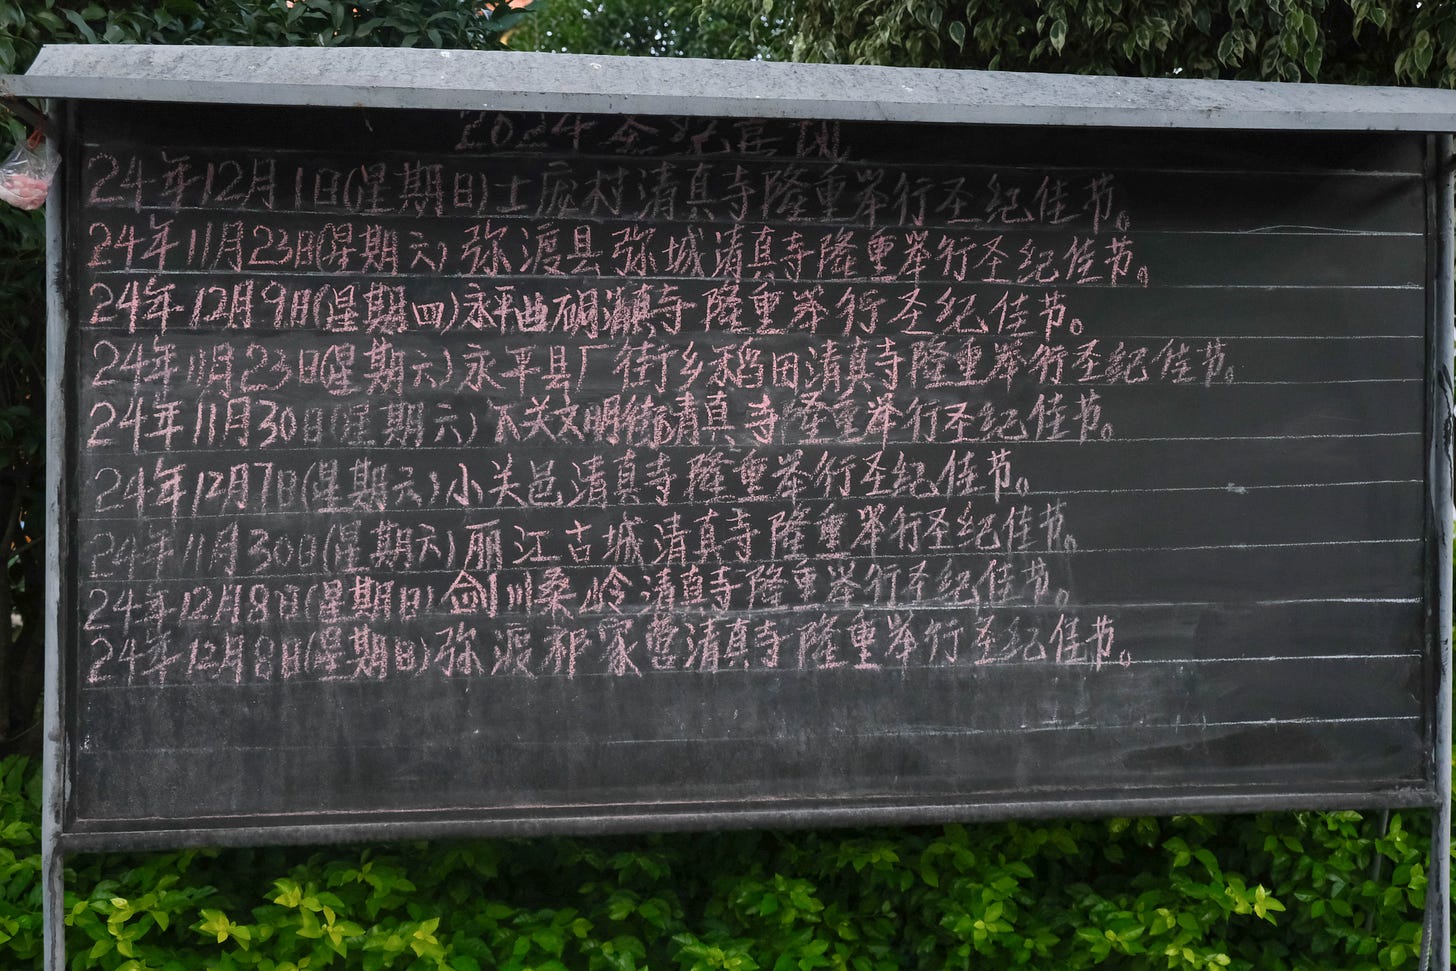 2024年圣纪喜讯
24年12月1日(星期日)土庞村清真寺隆重举行圣纪佳节。
24年11月23日(星期六)弥渡县弥城清真寺隆重举行圣纪佳节。
24年12月9日(星期四)永平曲硐清真寺隆重举行圣纪佳节。
24年11月23日(星期六)永平县厂街乡稻田清真寺隆重举行圣纪佳节。
24年11月30日(星期六)下关文明街清真寺隆重举行圣纪佳节。
24年12月7日(星期六)小关邑清真寺隆重举行圣纪佳节。
24年11月30日(星期六)丽江古城清真寺隆重举行圣纪佳节。
24年12月8日(星期日)剑川桑岭清真寺隆重举行圣纪佳节。
24年12月8日(星期日)弥渡祁家营清真寺隆重举行圣纪佳节。